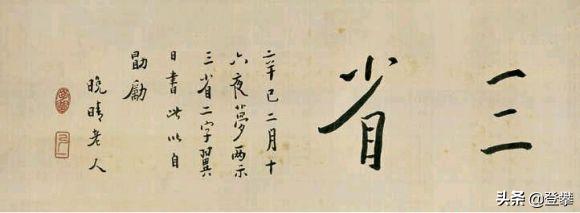 三省
辛巳二月十
六夜夢兩示
三省二字翼
日書此以自
勖勵
晚晴老人
头条 @登攀